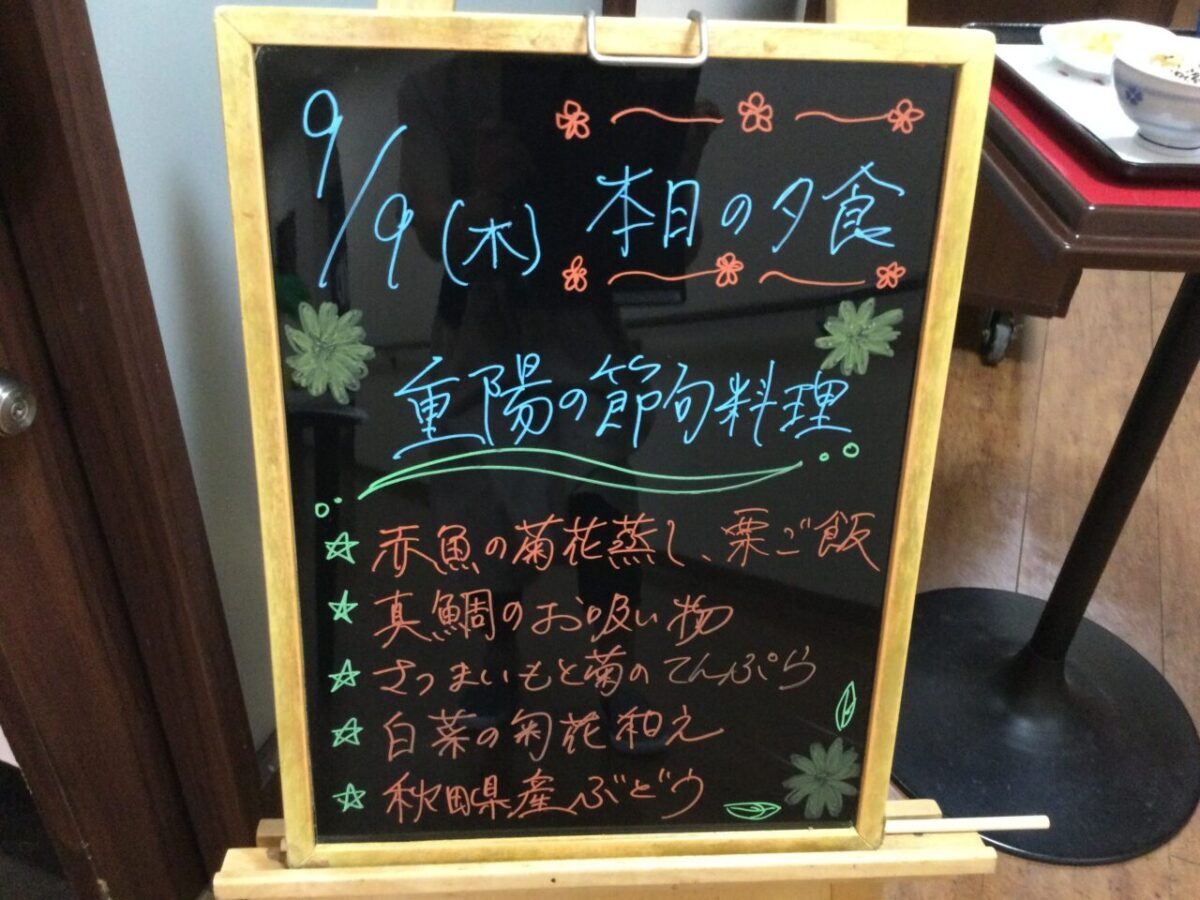 9/9(木) 本日の夕食
重陽の節句料理
☆ 赤魚の菊花蒸し、栗ご飯
☆ 真鯛のお吸い物
☆ さつまいもと菊のてんぷら
☆ 白菜の菊花和え
☆ 秋田県産ぶどう